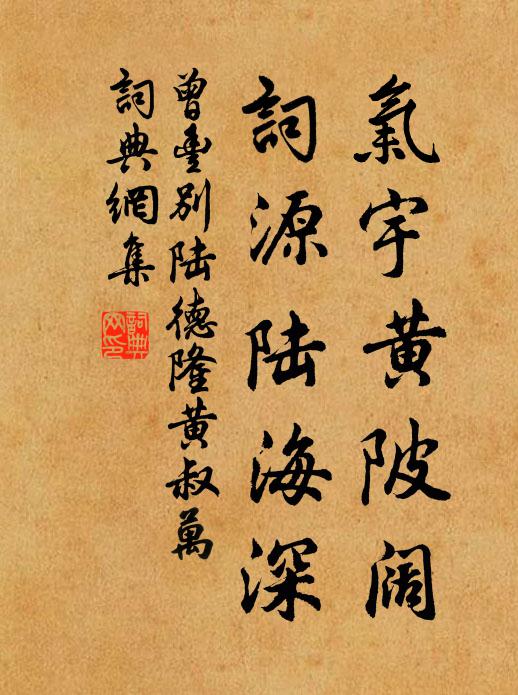 氣宇黃陂闊
詞源陸海深
曾豐別陸德隆黃叔萬
詞典網集
詞典網印